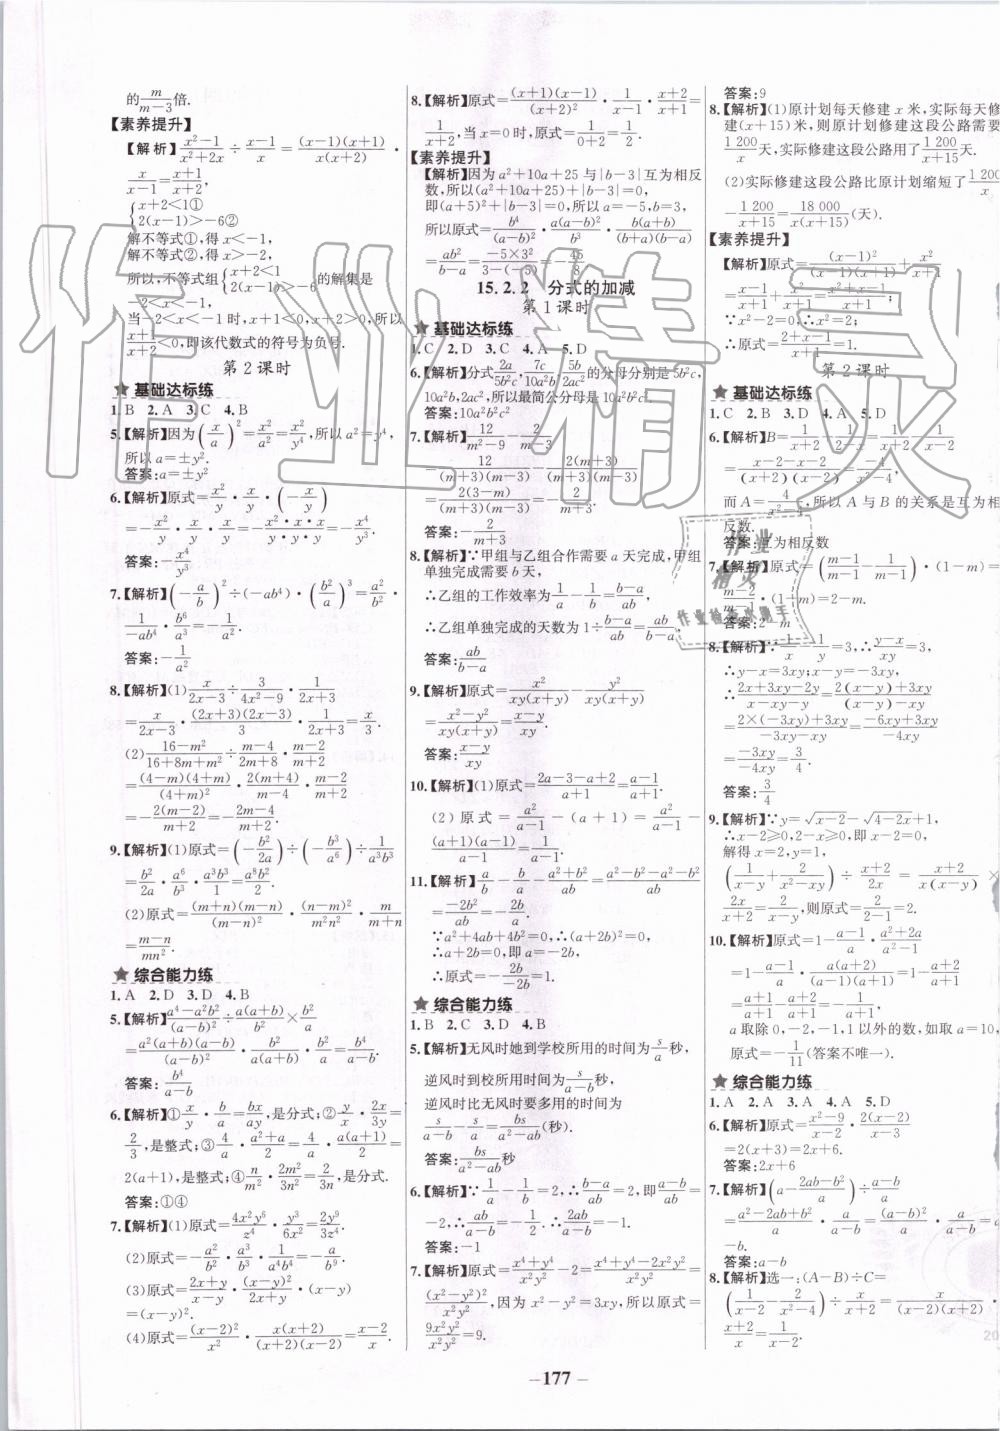 的m/(m-3)倍.
【素养提升】
【解析】(x²-1)/(x²+2x)÷(x-1)/x=(x+1)(x-1)/x(x+2)·
x/(x-1)=(x+1)/(x+2),
{x+2<1①
2(x-1)>-6②
解不等式①,得x<-1,
解不等式②,得x>-2,
所以,不等式组{x+2<1 2(x-1)>-6的解集是
-2<x<-1,
当-2<x<-1时,x+1<0,x+2>0,所以
(x+1)/(x+2)<0,即该代数式的符号为负号.
第2课时
★基础达标练
1.B 2.A 3.C 4.B
5.【解析】因为(x/a)²=x²/a²=x²/y⁴,所以a²=y⁴,
所以a=±y².
答案:a=±y²
6.【解析】原式=x²/y·x/y·(-x/y)
=-x²/y·x/y·x/y=-x²·x·x/y·y·y=-x⁴/y³.
答案:-x⁴/y³
7.【解析】(-a/b)²÷(-ab⁴)·(b²/a)³=a²/b²·
1/(-ab⁴)·b⁶/a³=-1/a².
答案:-1/a²
8.【解析】(1)x/(2x-3)÷3/(4x²-9)·1/(2x+3)
=x/(2x-3)·(2x+3)(2x-3)/3·1/(2x+3)=x/3.
(2)(16-m²)/(16+8m+m²)÷(m-4)/(2m+8)·(m-2)/(m+2)
=(4-m)(4+m)/(4+m)²·2(m+4)/(m-4)·(m-2)/(m+2)
=-2(m-2)/(m+2)=-(2m-4)/(m+2).
9.【解析】(1)原式=(-b²/2a)÷(-b³/a⁶)÷1/(a³b³)
=b²/2a·a⁶/b³·a³b³/1=a⁸b²/2.
(2)原式=(m+n)(m-n)/(m-n)²·(n-m)²/(m²n²)·m/(m+n)
=(m-n)/(mn²).
★综合能力练
1.A 2.D 3.D 4.B
5.【解析】(a⁴-a²b²)/(a-b)²÷a(a+b)/b²×b²/a
=a²(a+b)(a-b)/(a-b)²·b²/a(a+b)·b²/a=b⁴/(a-b).
答案:b⁴/(a-b)
6.【解析】①x/y·b/a=bx/ay,是分式;②y/x·2x/3y=
2/3,是整式;③4/a·(a²+a)/2=4/a·a(a+1)/2=
2(a+1),是整式;④n/m²·2m²/3n²=2/3n,是分式.
答案:①④
7.【解析】(1)原式=4x²y⁶/z⁴·y³/6x²=2y⁹/3z⁴.
(2)原式=-a²/b²·a³/b³·1/(a⁴b⁴)=-a/b⁹.
(3)原式=(2x+y)/(x-y)·(x-y)³/(2x+y)
=(x-y)².
(4)原式=(x-2)²/x²·x(x+2)/(x+2)(x-2)=(x-2)/x.
8.【解析】原式=(x+1)(x-1)/(x+2)²·1/(x-1)·(x+2)/(x+1)=
1/(x+2),当x=0时,原式=1/(0+2)=1/2.
【素养提升】
【解析】因为a²+10a+25与|b-3|互为相反
数,所以(a²+10a+25)+|b-3|=0,
即(a+5)²+|b-3|=0,所以a=-5,b=3,
所以原式=b⁴/(a-b)²·a(a-b)²/b³·b(a+b)/(b+a)(b-a)
=ab²/(b-a)=-5×3²/(3-(-5))=-45/8.
15.2.2 分式的加减
第1课时
★基础达标练
1.C 2.D 3.C 4.A 5.D
6.【解析】分式2a/5b²c,7c/10a²b,5b/2ac²的分母分别是5b²c,
10a²b,2ac²,所以最简公分母是10a²b²c².
答案:10a²b²c²
7.【解析】12/(m²-9)-2/(m-3)
=12/(m+3)(m-3)-2(m+3)/(m+3)(m-3)
=-2(m-3)/(m+3)(m-3)=-2/(m+3).
答案:-2/(m+3)
8.【解析】∵甲组与乙组合作需要a天完成,甲组
单独完成需要b天,
∴乙组的工作效率为1/a-1/b=(b-a)/ab,
∴乙组单独完成的天数为1÷(b-a)/ab=ab/(b-a).
答案:ab/(b-a)
9.【解析】原式=x²/xy(x+y)-y²/xy(x+y)
=(x²-y²)/xy(x+y)=(x-y)/xy.
答案:(x-y)/xy
10.【解析】(1)原式=(2a-3-a+2)/(a+1)=(a-1)/(a+1).
(2)原式=a²/(a-1)-(a+1)=a²/(a-1)-
(a+1)(a-1)/(a-1)=1/(a-1).
11.【解析】a/b-b/a-(a²+b²)/ab=(a²-b²-a²-b²)/ab
=-2b²/ab=-2b/a.
∵a²+4ab+4b²=0,∴(a+2b)²=0,
∴a+2b=0,即a=-2b,
∴原式=-2b/-2b=1.
★综合能力练
1.B 2.C 3.D 4.B
5.【解析】无风时她到学校所用的时间为s/a秒,
逆风时到校所用时间为s/(a-b)秒,
逆风时比无风时要多用的时间为
s/(a-b)-s/a=bs/a(a-b)=bs/(a²-ab)(秒).
答案:bs/(a²-ab)秒
6.【解析】∵1/a-1/b=2,∴(b-a)/ab=2,即(a-b)/ab=
-2,∴ab/(a-b)=-1/2,∴2ab/(a-b)=-1.
答案:-1
7.【解析】原式=(x⁴+y⁴)/(x²y²)-2=(x⁴+y⁴-2x²y²)/(x²y²)=
(x²-y²)²/(x²y²),因为x²-y²=3xy,所以原式=
9x²y²/x²y²=9.
答案:9
8.【解析】(1)原计划每天修建x米,实际每天修
建(x+15)米,则原计划修建这段公路需要
1 200/x天,实际修建这段公路用了1 200/(x+15)天.
(2)实际修建这段公路比原计划缩短了1 200/x
-1 200/(x+15)=18 000/x(x+15)(天).
【素养提升】
第2课时
★基础达标练
1.C 2.B 3.D 4.A 5.D
6.【解析】B=1/(x+2)-1/(x-2)
=(x-2-x-2)/(x+2)(x-2)=-4/(x²-4),
而A=4/(x²-4),所以A与B的关系是互为相
反数.
答案:互为相反数
7.【解析】原式=((m-1)/(m-1)-1/(m-1))·(1-m)=
(m-2)/(m-1)·(1-m)=2-m.
答案:2-m
8.【解析】∵1/x-1/y=3,∴(y-x)/xy=3,
∴y-x=3xy;x-y=-3xy,
∴(2x+3xy-2y)/(x-xy-y)=(2(x-y)+3xy)/((x-y)-xy)
=(2×(-3xy)+3xy)/(-3xy-xy)=(-6xy+3xy)/-4xy
=-3xy/-4xy=3/4.
答案:3/4
9.【解析】∵y=√(x-2)-√(4-2x)+1,
∴x-2≥0,2-x≥0,即x-2=0,
解得x=2,y=1,
(1/(x-y)+2/(x²-xy))÷(x+2)/2x=(x+2)/x(x-y)×
2x/(x+2)=2/(x-y),则原式=2/(2-1)=2.
10.【解析】原式=1-(a-1)/a·(a²+2a)/(a²-1)
=1-(a-1)/a·a(a+2)/(a-1)(a+1)=1-(a+2)/(a+1)=
(a+1)/(a+1)-(a+2)/(a+1)=-1/(a+1),
a取除0,-2,-1,1以外的数,如取a=10,
原式=-1/11(答案不唯一).
★综合能力练
1.A 2.A 3.A 4.A 5.D
6.【解析】原式=(x²-9)/(x-2)·2(x-2)/(x-3)
=2(x+3)=2x+6.
答案:2x+6
7.【解析】(a-(2ab-b²)/a)÷(a-b)/a
=(a²-2ab+b²)/a·a/(a-b)=(a-b)²/a·a/(a-b)=a
-b.
答案:a-b
8.【解析】选一:(A-B)÷C=
(1/(x-2)-2/(x²-4))÷x/(x+2)=x/(x-2)(x+2)·
(x+2)/x=1/(x-2).
-177-
作业精灵
作业
精灵